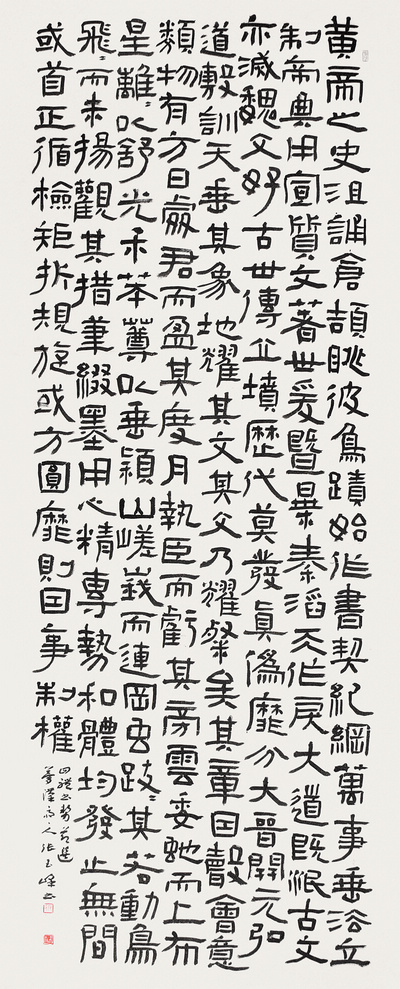 黄帝之史沮誦倉頡眺彼鳥蹟始作書契紀綱萬事垂法立
制帝典用宣質文著世爰暨暴秦滔天作戾大道既泯古文
亦滅魏文好古世傳丘墳歷代莫發真偽靡分大晉開元弘
道敷訓天垂其象地耀其文其文乃耀粲矣其章因聲會意
類物有方日處君而盈其度月執臣而虧其旁雲委虵而上布
星離々以舒光禾苯䔿以垂穎山嵯峩而連岡虫跂々其若動鳥
飛々而未揚觀其措筆綴墨用心精專勢和體均發止無間
或首正循檢矩折規旋或方圓靡則因事制權
四體書勢節選